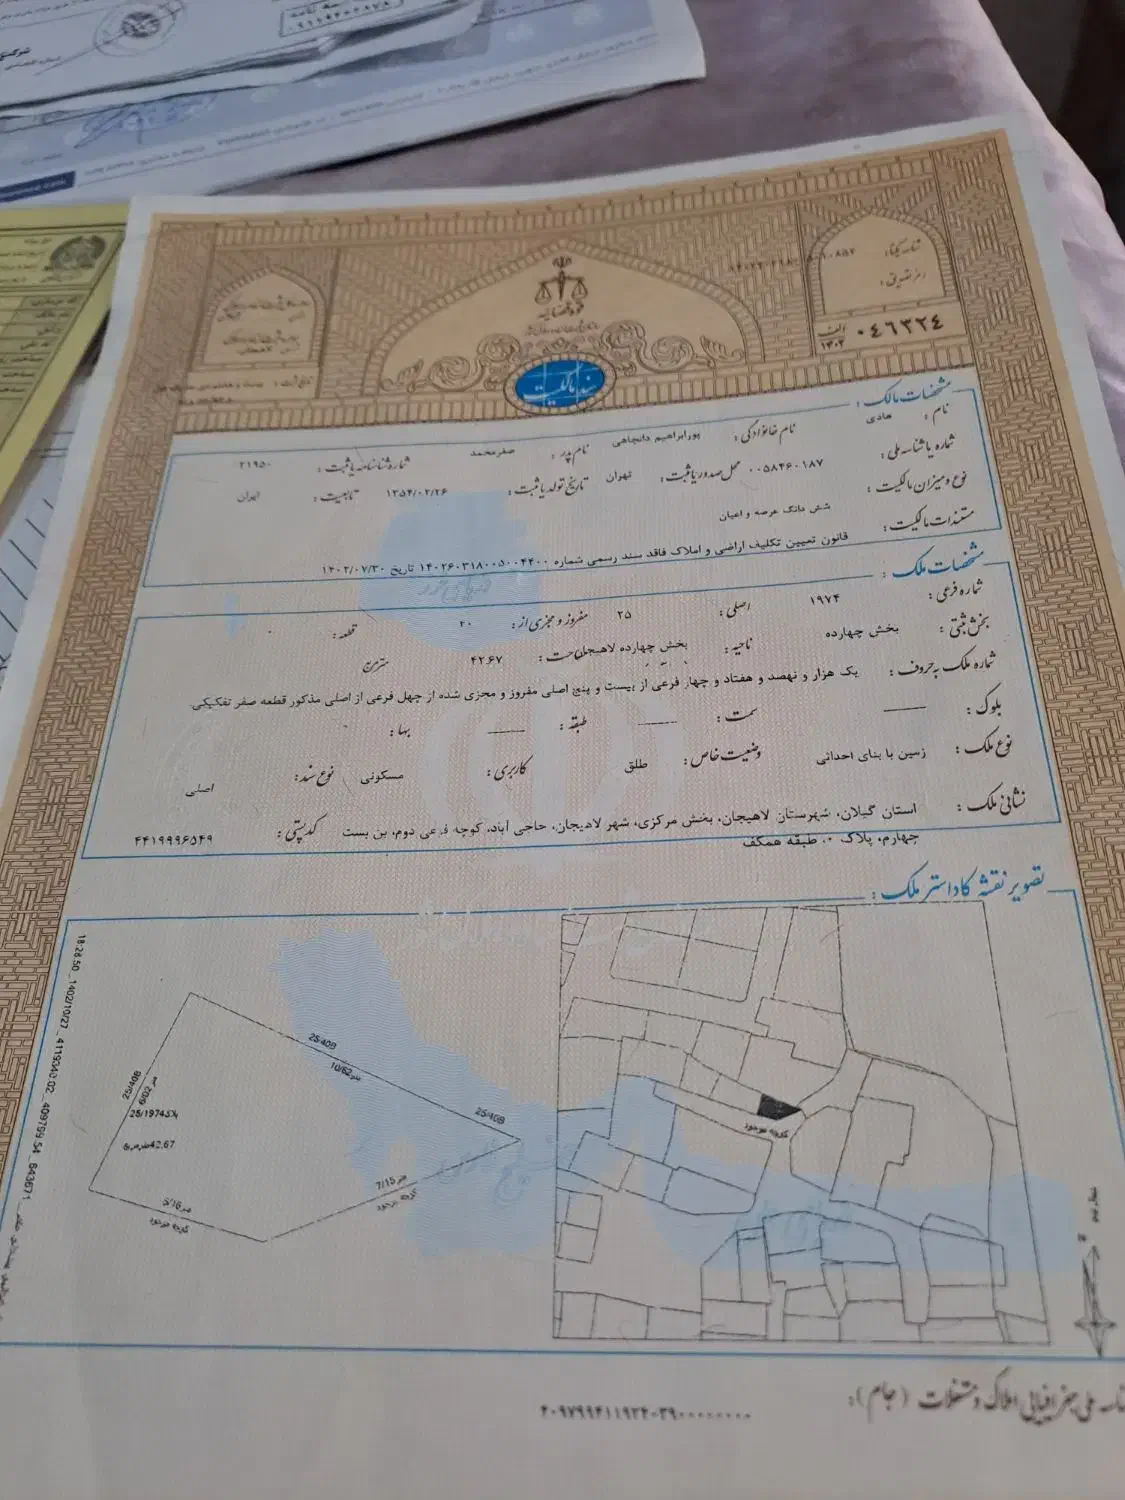 سه نامه
شناسه یکتا:
رمز تصدیق:
قوه قضاییه
۰۴۶۳۲۴
الف
۱۴۰۲
سند مالکیت
مشخصات مالک:
نام: هادی نام خانوادگی: پورابراهیم دانچاهی نام پدر: صفرمحمد شماره شناسنامه یا ثبت: ۲۱۹۵۰
شماره یا شناسه ملی: ۰۰۵۸۴۶۰۱۸۷ محل صدور یا ثبت: تهران تاریخ تولد یا ثبت: ۱۳۵۴/۰۲/۲۶ تابعیت: ایران
نوع و میزان مالکیت: شش دانگ عرصه و اعیان
مستندات مالکیت: قانون تعیین تکلیف اراضی و املاک فاقد سند رسمی شماره ۱۴۰۲۶۰۳۱۸۰۰۵۰۰۴۴۰۰ تاریخ ۱۴۰۲/۰۷/۳۰
مشخصات ملک:
شماره فرعی: ۱۹۷۴ اصلی: ۲۵ مفروز و مجزی از: ۴۰ قطعه:
بخش ثبتی: بخش چهارده ناحیه: بخش چهارده لاهیجان مساحت: ۴۲.۶۷ مترمربع
شماره ملک به حروف: یک هزار و نهصد و هفتاد و چهار فرعی از بیست و پنج اصلی مفروز و مجزی شده از چهل فرعی از اصلی مذکور قطعه صفر تفکیکی.
بلوک: ——— سمت: ——— طبقه: ——— بهاء:
نوع ملک: زمین با بنای احداثی وضعیت خاص: طلق کاربری: مسکونی نوع سند: اصلی
نشانی ملک: استان گیلان، شهرستان لاهیجان، بخش مرکزی، شهر لاهیجان، حاجی آباد، کوچه فرعی دوم، بن بست کدپستی: ۴۴۱۹۹۹۶۵۴۹
چهارم، پلاک ۰، طبقه همکف
تصویر نقشه کاداستر ملک:
25/40B
10/62متر
25/40B
25/40B
6/02متر
25/1974
42.67
7/15متر
کوچه موجود
5/16متر
کوچه موجود
کوچه موجود
شناسه ملی جغرافیایی املاک و مستغلات (جام):